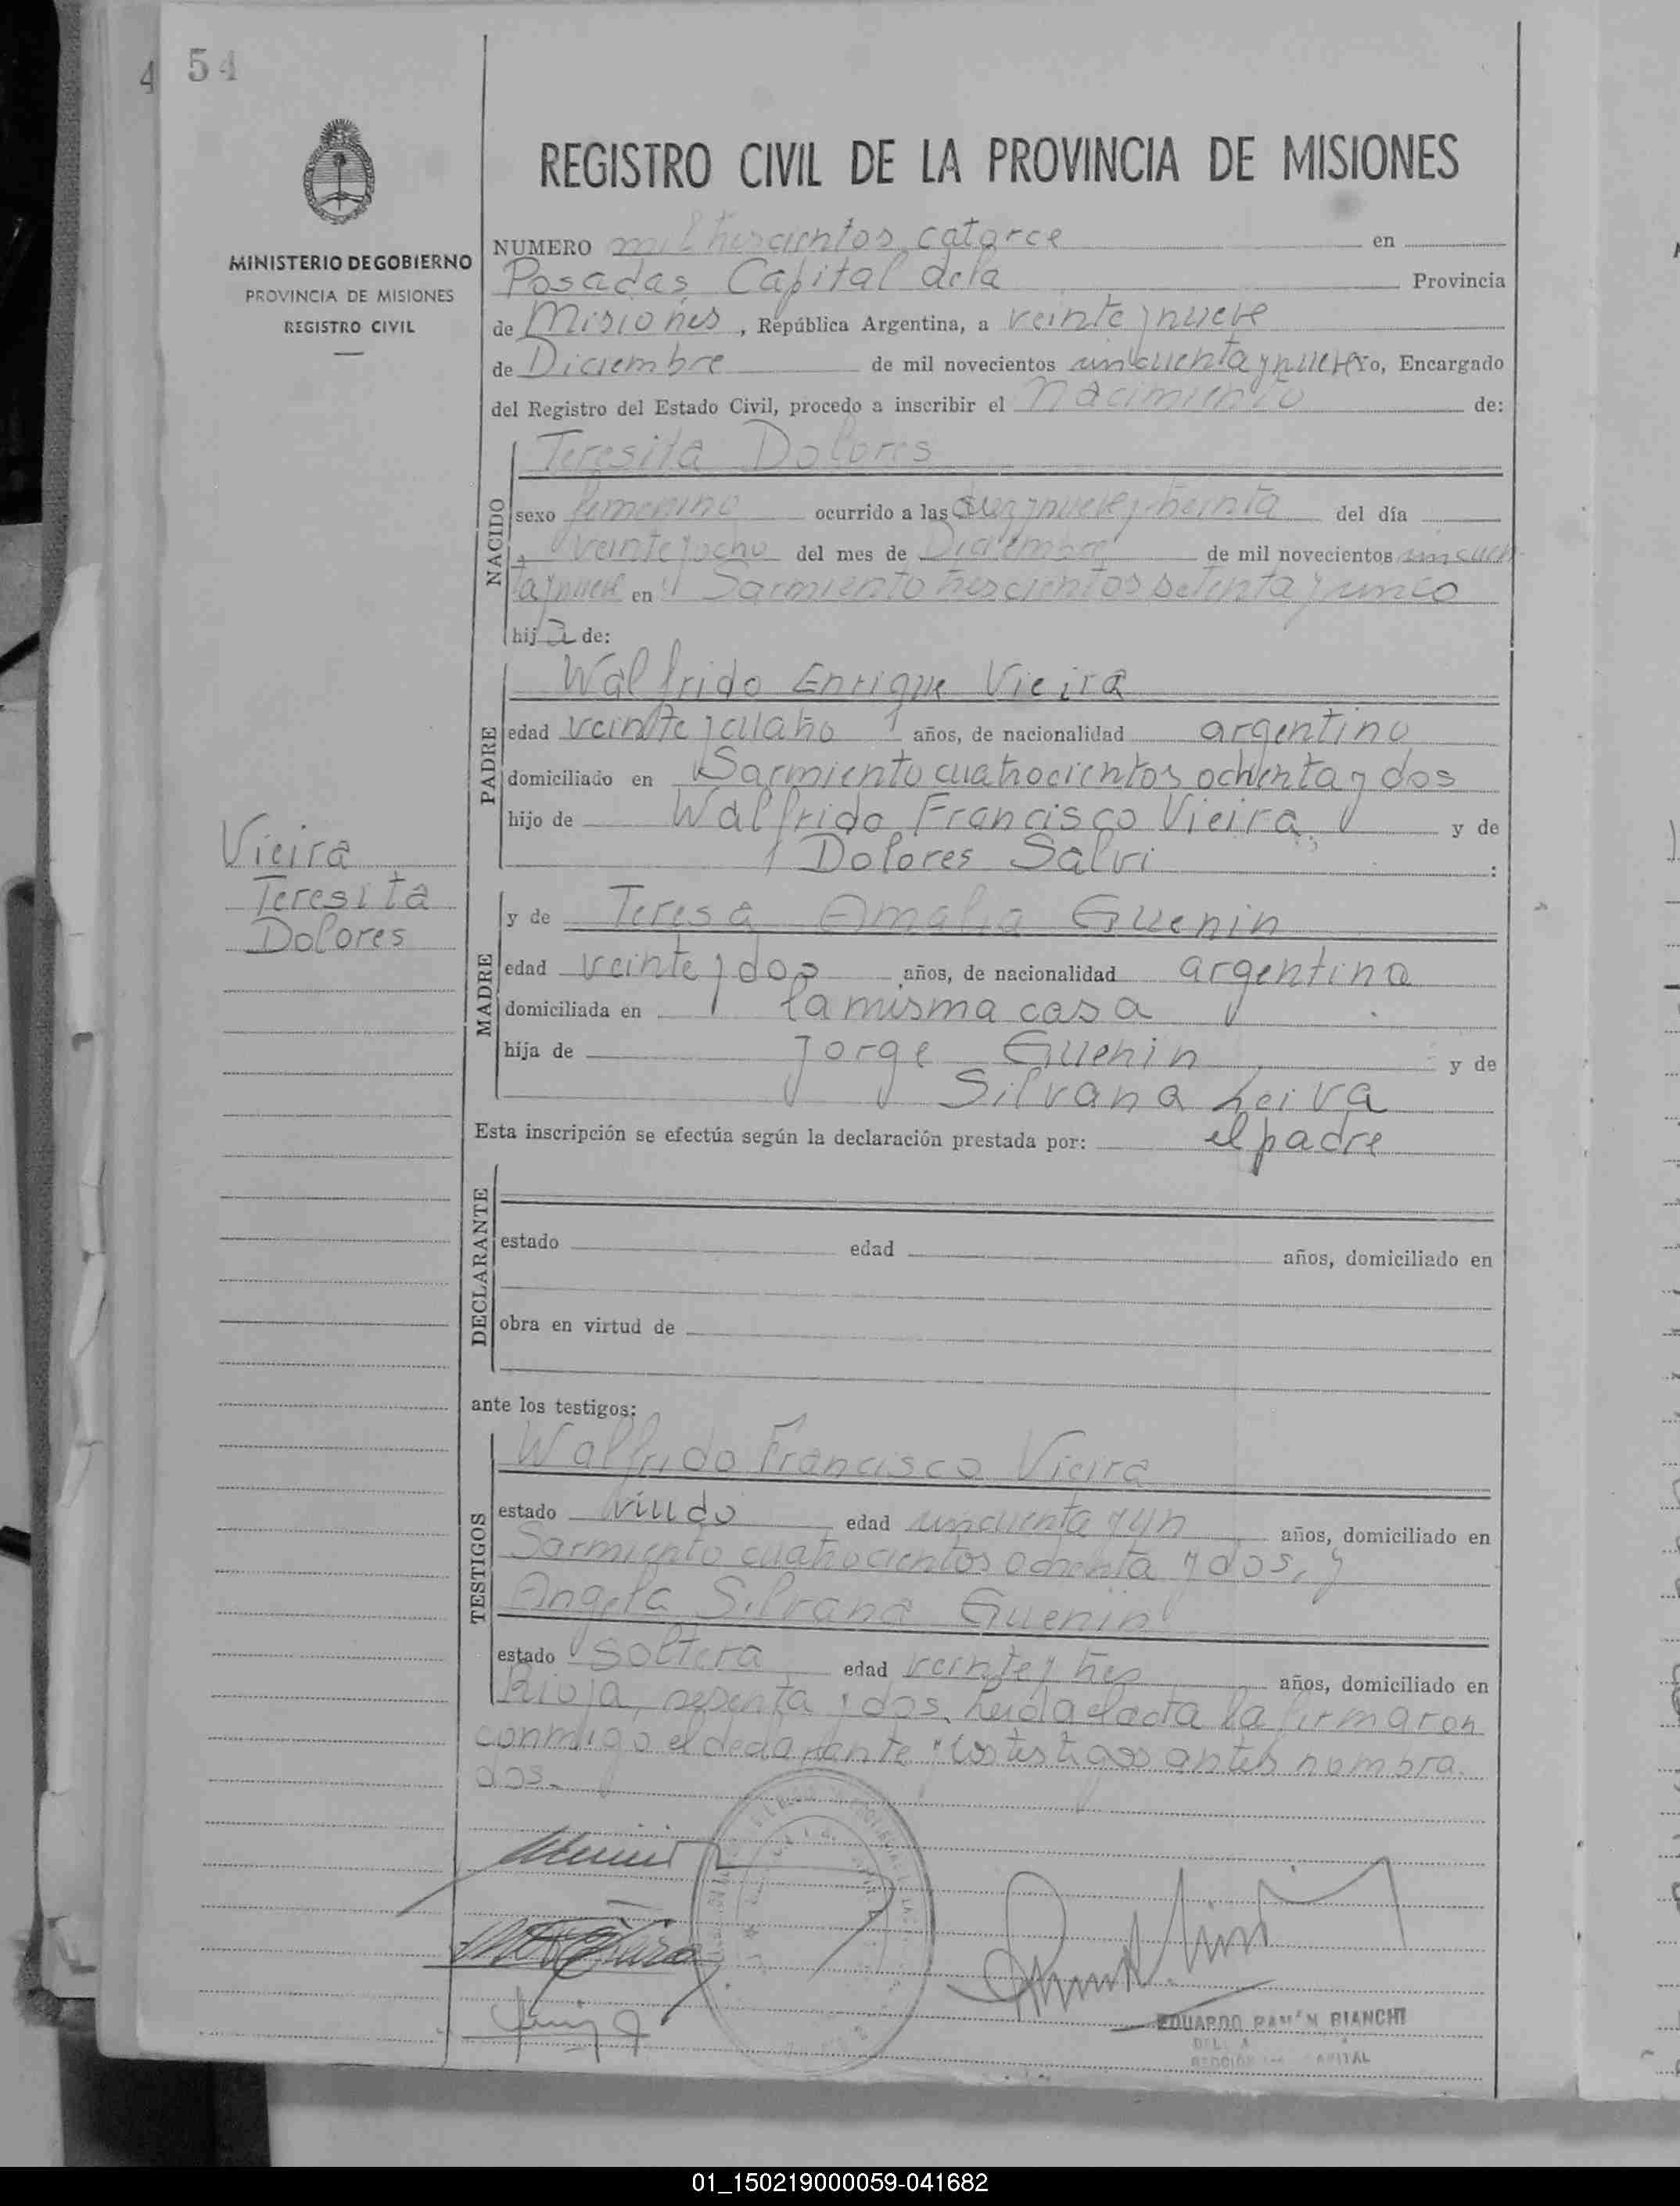 4 54
REGISTRO CIVIL DE LA PROVINCIA DE MISIONES
MINISTERIO DE GOBIERNO
PROVINCIA DE MISIONES
REGISTRO CIVIL
NUMERO mil trescientos catorce en
Posadas, Capital de la Provincia
de Misiones, República Argentina, a veinte y nueve
de Diciembre de mil novecientos cincuenta y nueve Yo, Encargado
del Registro del Estado Civil, procedo a inscribir el Nacimiento de:
NACIDO
Teresita Dolores
sexo femenino ocurrido a las diez y nueve y treinta del día
veinte y ocho del mes de Diciembre de mil novecientos cincuen
ta y nueve en Sarmiento trescientos setenta y cinco
hija de:
PADRE
Walfrido Enrique Vieira
edad veinte y cuatro años, de nacionalidad argentino
domiciliado en Sarmiento cuatrocientos ochenta y dos
hijo de Walfrido Francisco Vieira y de
Dolores Salvi :
Vieira
Teresita
Dolores
MADRE
y de Teresa Amalia Guenin
edad veinte y dos años, de nacionalidad argentina
domiciliada en la misma casa
hija de Jorge Guenin y de
Silvana Leiva
Esta inscripción se efectúa según la declaración prestada por: el padre
DECLARANTE
estado edad años, domiciliado en
obra en virtud de
ante los testigos:
TESTIGOS
Walfrido Francisco Vieira
estado viudo edad cincuenta y un años, domiciliado en
Sarmiento cuatrocientos ochenta y dos, y
Angela Silvana Guenin
estado soltera edad veinte y tres años, domiciliado en
Rioja, sesenta y dos, leida el acta la firmaron
conmigo el declarante y los testigos antes nombra
dos.-
EDUARDO RAMÓN BIANCHI
01_150219000059-041682